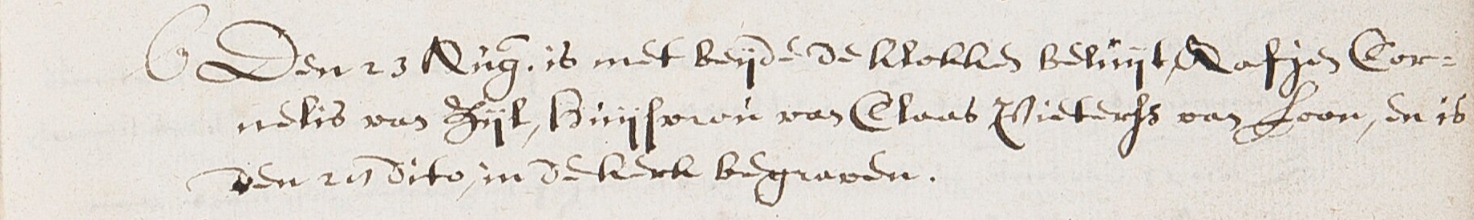 6 Den 23 Aug. is met beijde de klokken beluijt, Aafjen Cor=
nelis van Zijl, huijsvrou van Claas Pieterss van Loon, en is
den 27 dito, in de kerk begraven.